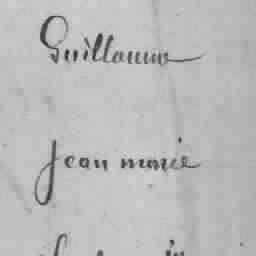 Guillaume
Jean marie